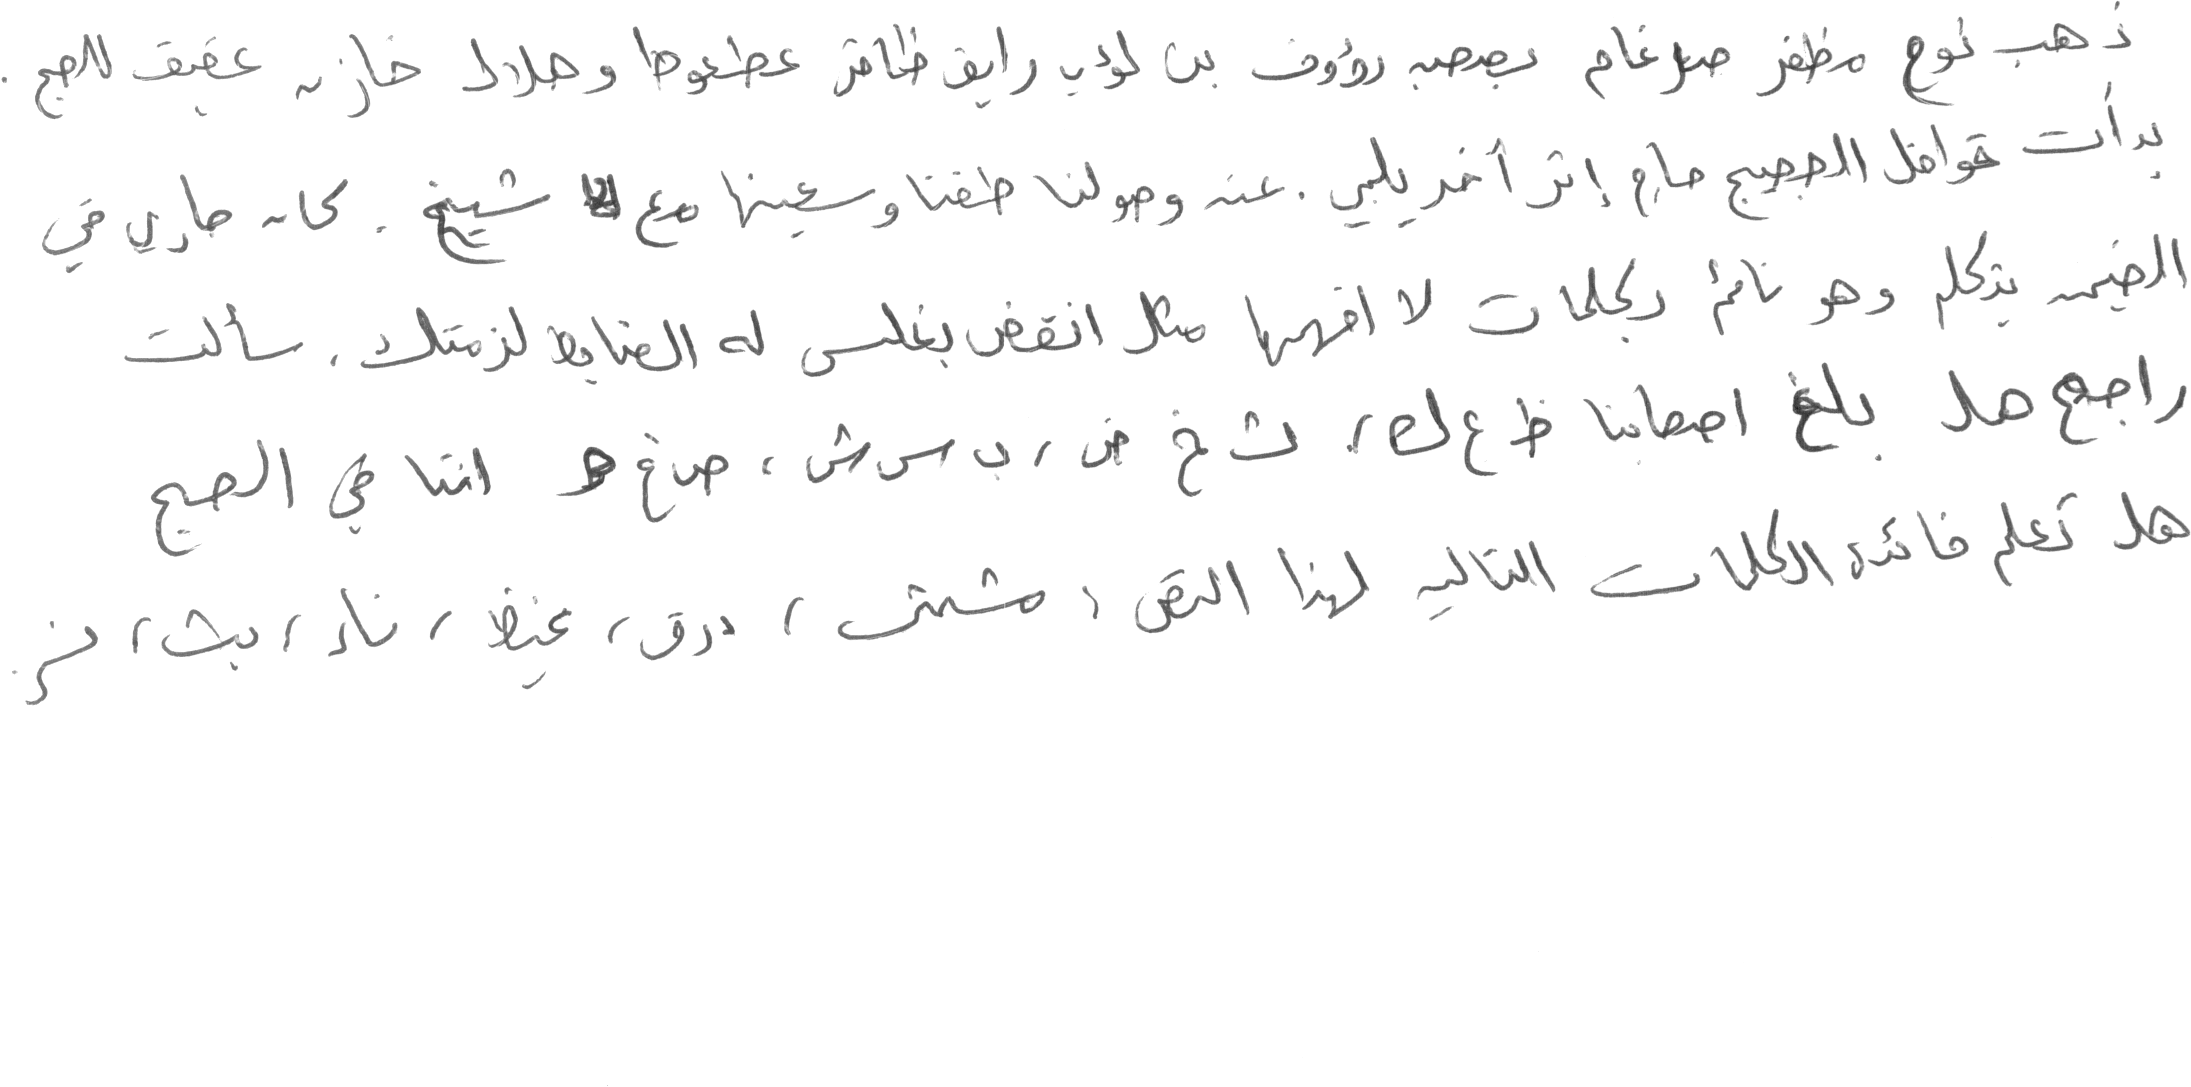 ذهب نوح مظفر ضرغام بصحبه رؤوف بن لؤي رايق ظافر عطعوط وهلال خازن عفيف للحج .
بدأت قوافل الحجيج حاج إثر أخر يلبي . عند وصولنا طفنا وسعينا مع شيخ . كان جاري في
الخيمه يتكلم وهو نائم بكلمات لا افهمها مثل انقض بغلس له الضابط لزمتك . سألت
راجع هل بلغ اصحابنا ظ ع ك ، ث خ ض ، ب س ش ، ص غ ه اننا في الحج
هل تعلم فائدة الكلمات التاليه لهذا النص : مشمش ، درق ، غيظ ، ناء ، بث ، نز .